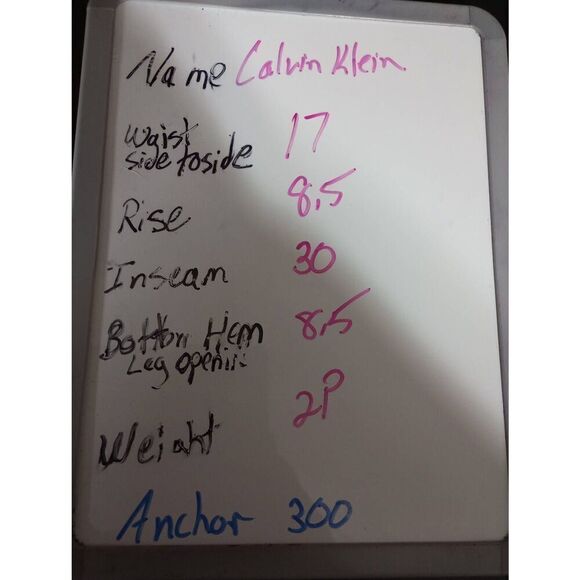 Name Calvin Klein
Waist 17
side to side
Rise 8.5
Inseam 30
Bottom Hem 8.5
Leg openin
Weight 2P
Anchor 300